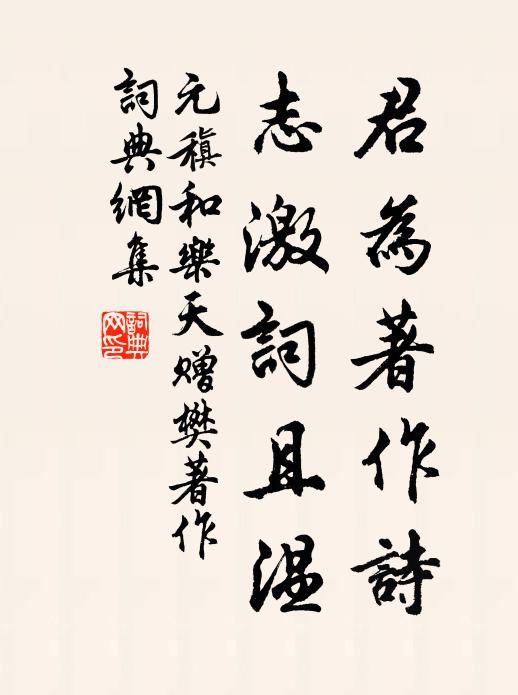 君為著作詩
志激詞且温
元稹和樂天贈樊著作
詞典網集
詞典網印